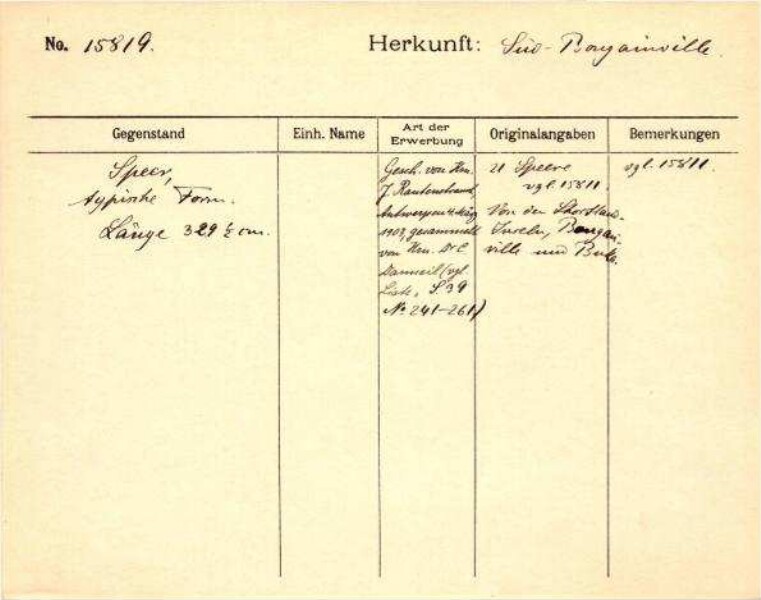 No. 15819. Herkunft: Süd-Bougainville.
Gegenstand
Einh. Name
Art der
Erwerbung
Originalangaben
Bemerkungen
Speer,
typische Form.
Länge 329 ½ cm.
Gesch. von Hrn.
J. Rautenstrauch,
Antwerpen 4. März
1903, gesammelt
von Hrn. Dr C
Danneil (vgl.
Liste, S. 39
No 241-261)
21 Speere
vgl. 15811.
Von den Shortland-
Inseln, Bougain-
ville und Buka.
vgl. 15811.